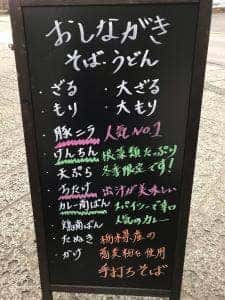 おしながき
そば・うどん
・ざる ・大ざる
・もり ・大もり
・豚ニラ 人気No.1
・けんちん 根菜類たっぷり
・天ぷら 冬季限定です!
・わたけ 出汁が美味しい
・カレー南ばん スパイシーで辛口
・鶏南ばん 人気のカレー
・たぬき 栃木県産の
・かけ 蕎麦粉を使用
手打ちそば